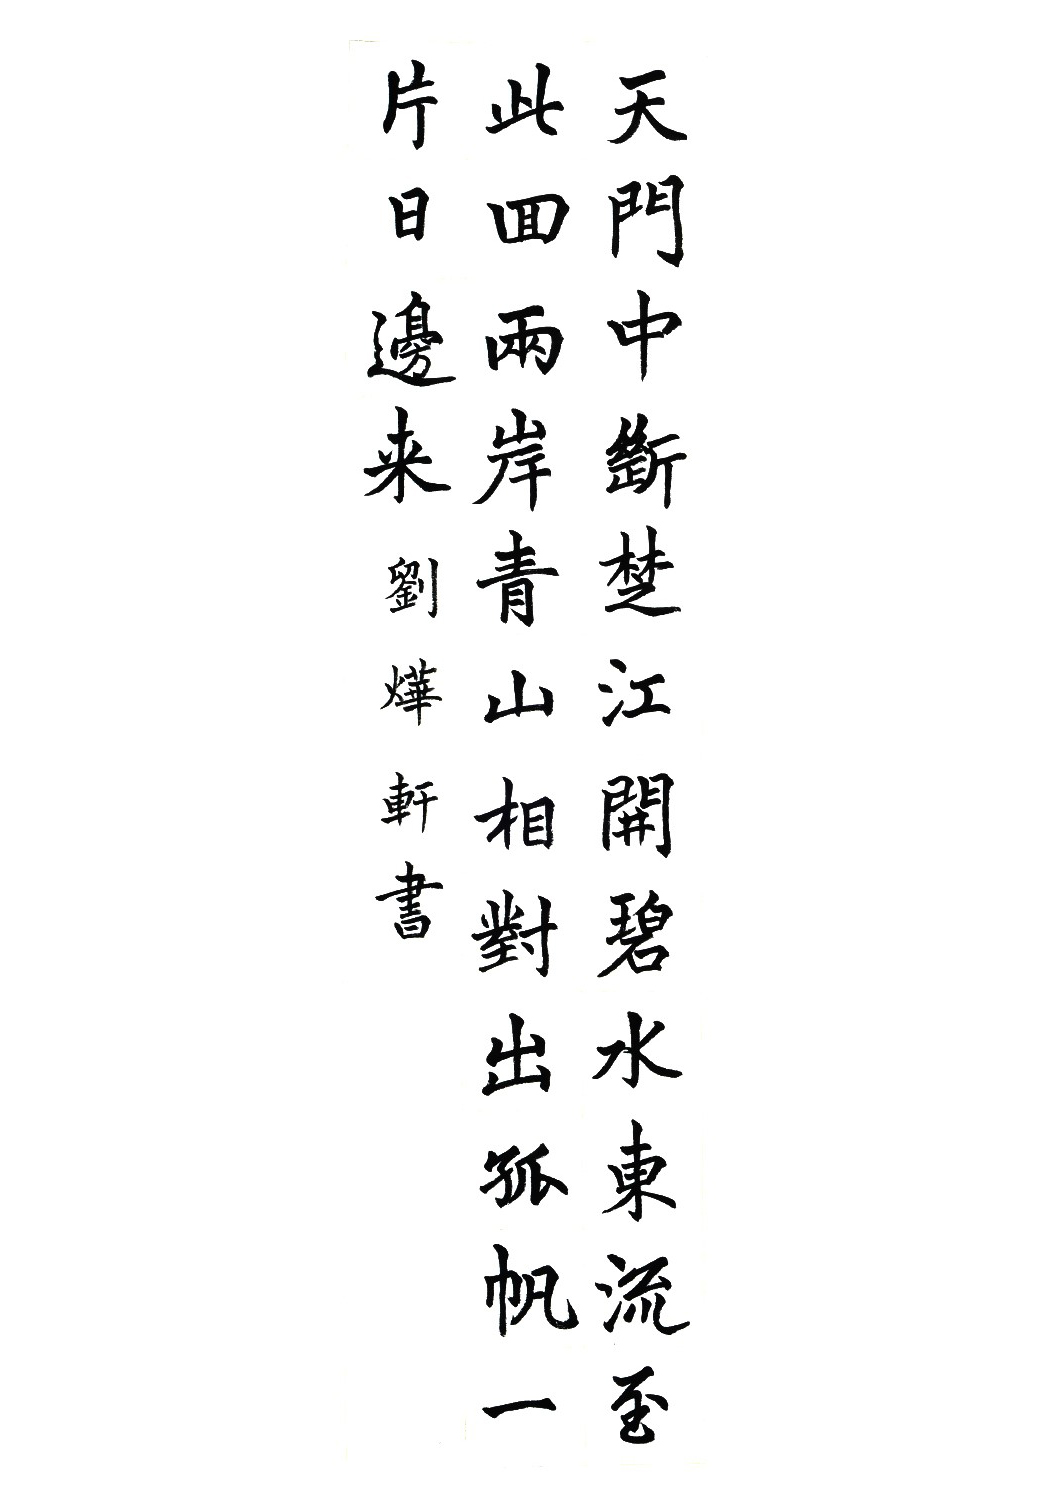 天門中斷楚江開碧水東流至
此回兩岸青山相對出孤帆一
片日邊来劉燁軒書